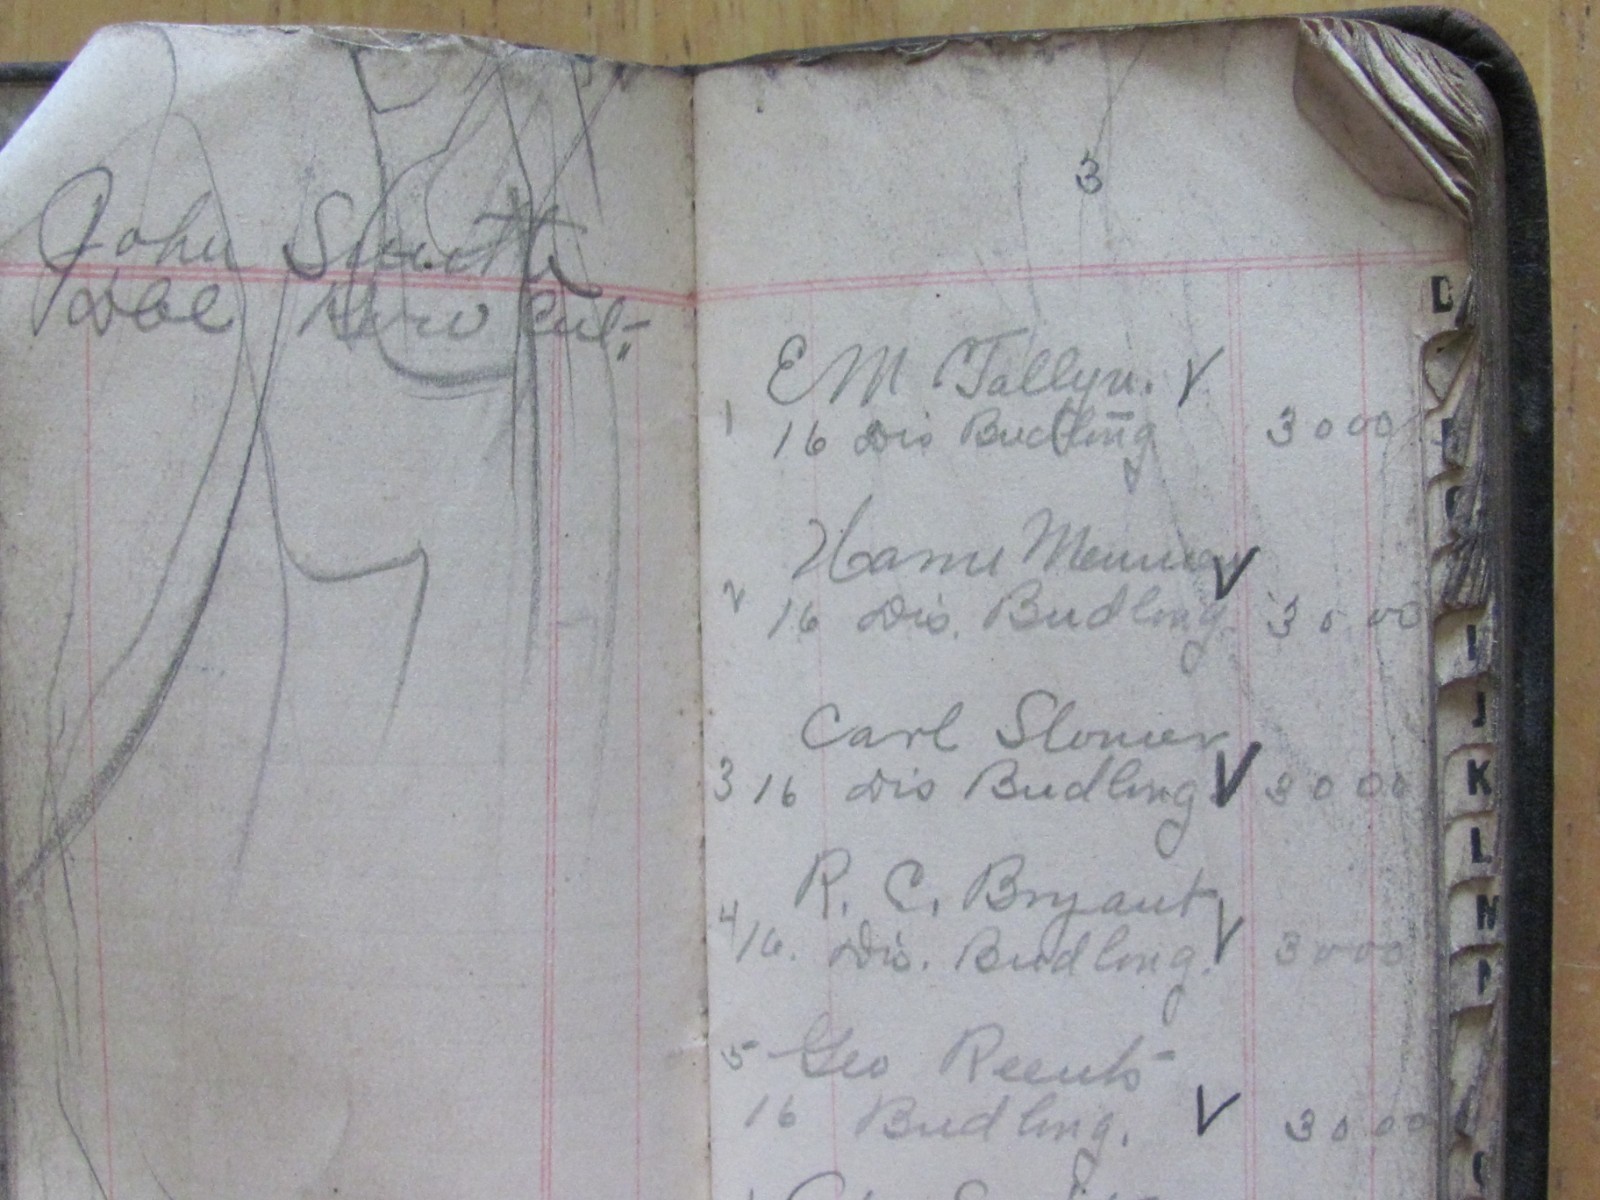 John Smith
3
E M Tallyn. ✓
1 16 Dis Budling 3000
2 16 Dis. Budling 3000
Carl Slonier
3 16 Dis Budling ✓ 3000
R. C. Bryant ✓
4 16. Dis. Budling. 3000
5 Geo Reents
16 Budling. ✓ 3000
D
I
J
K
L
N
P